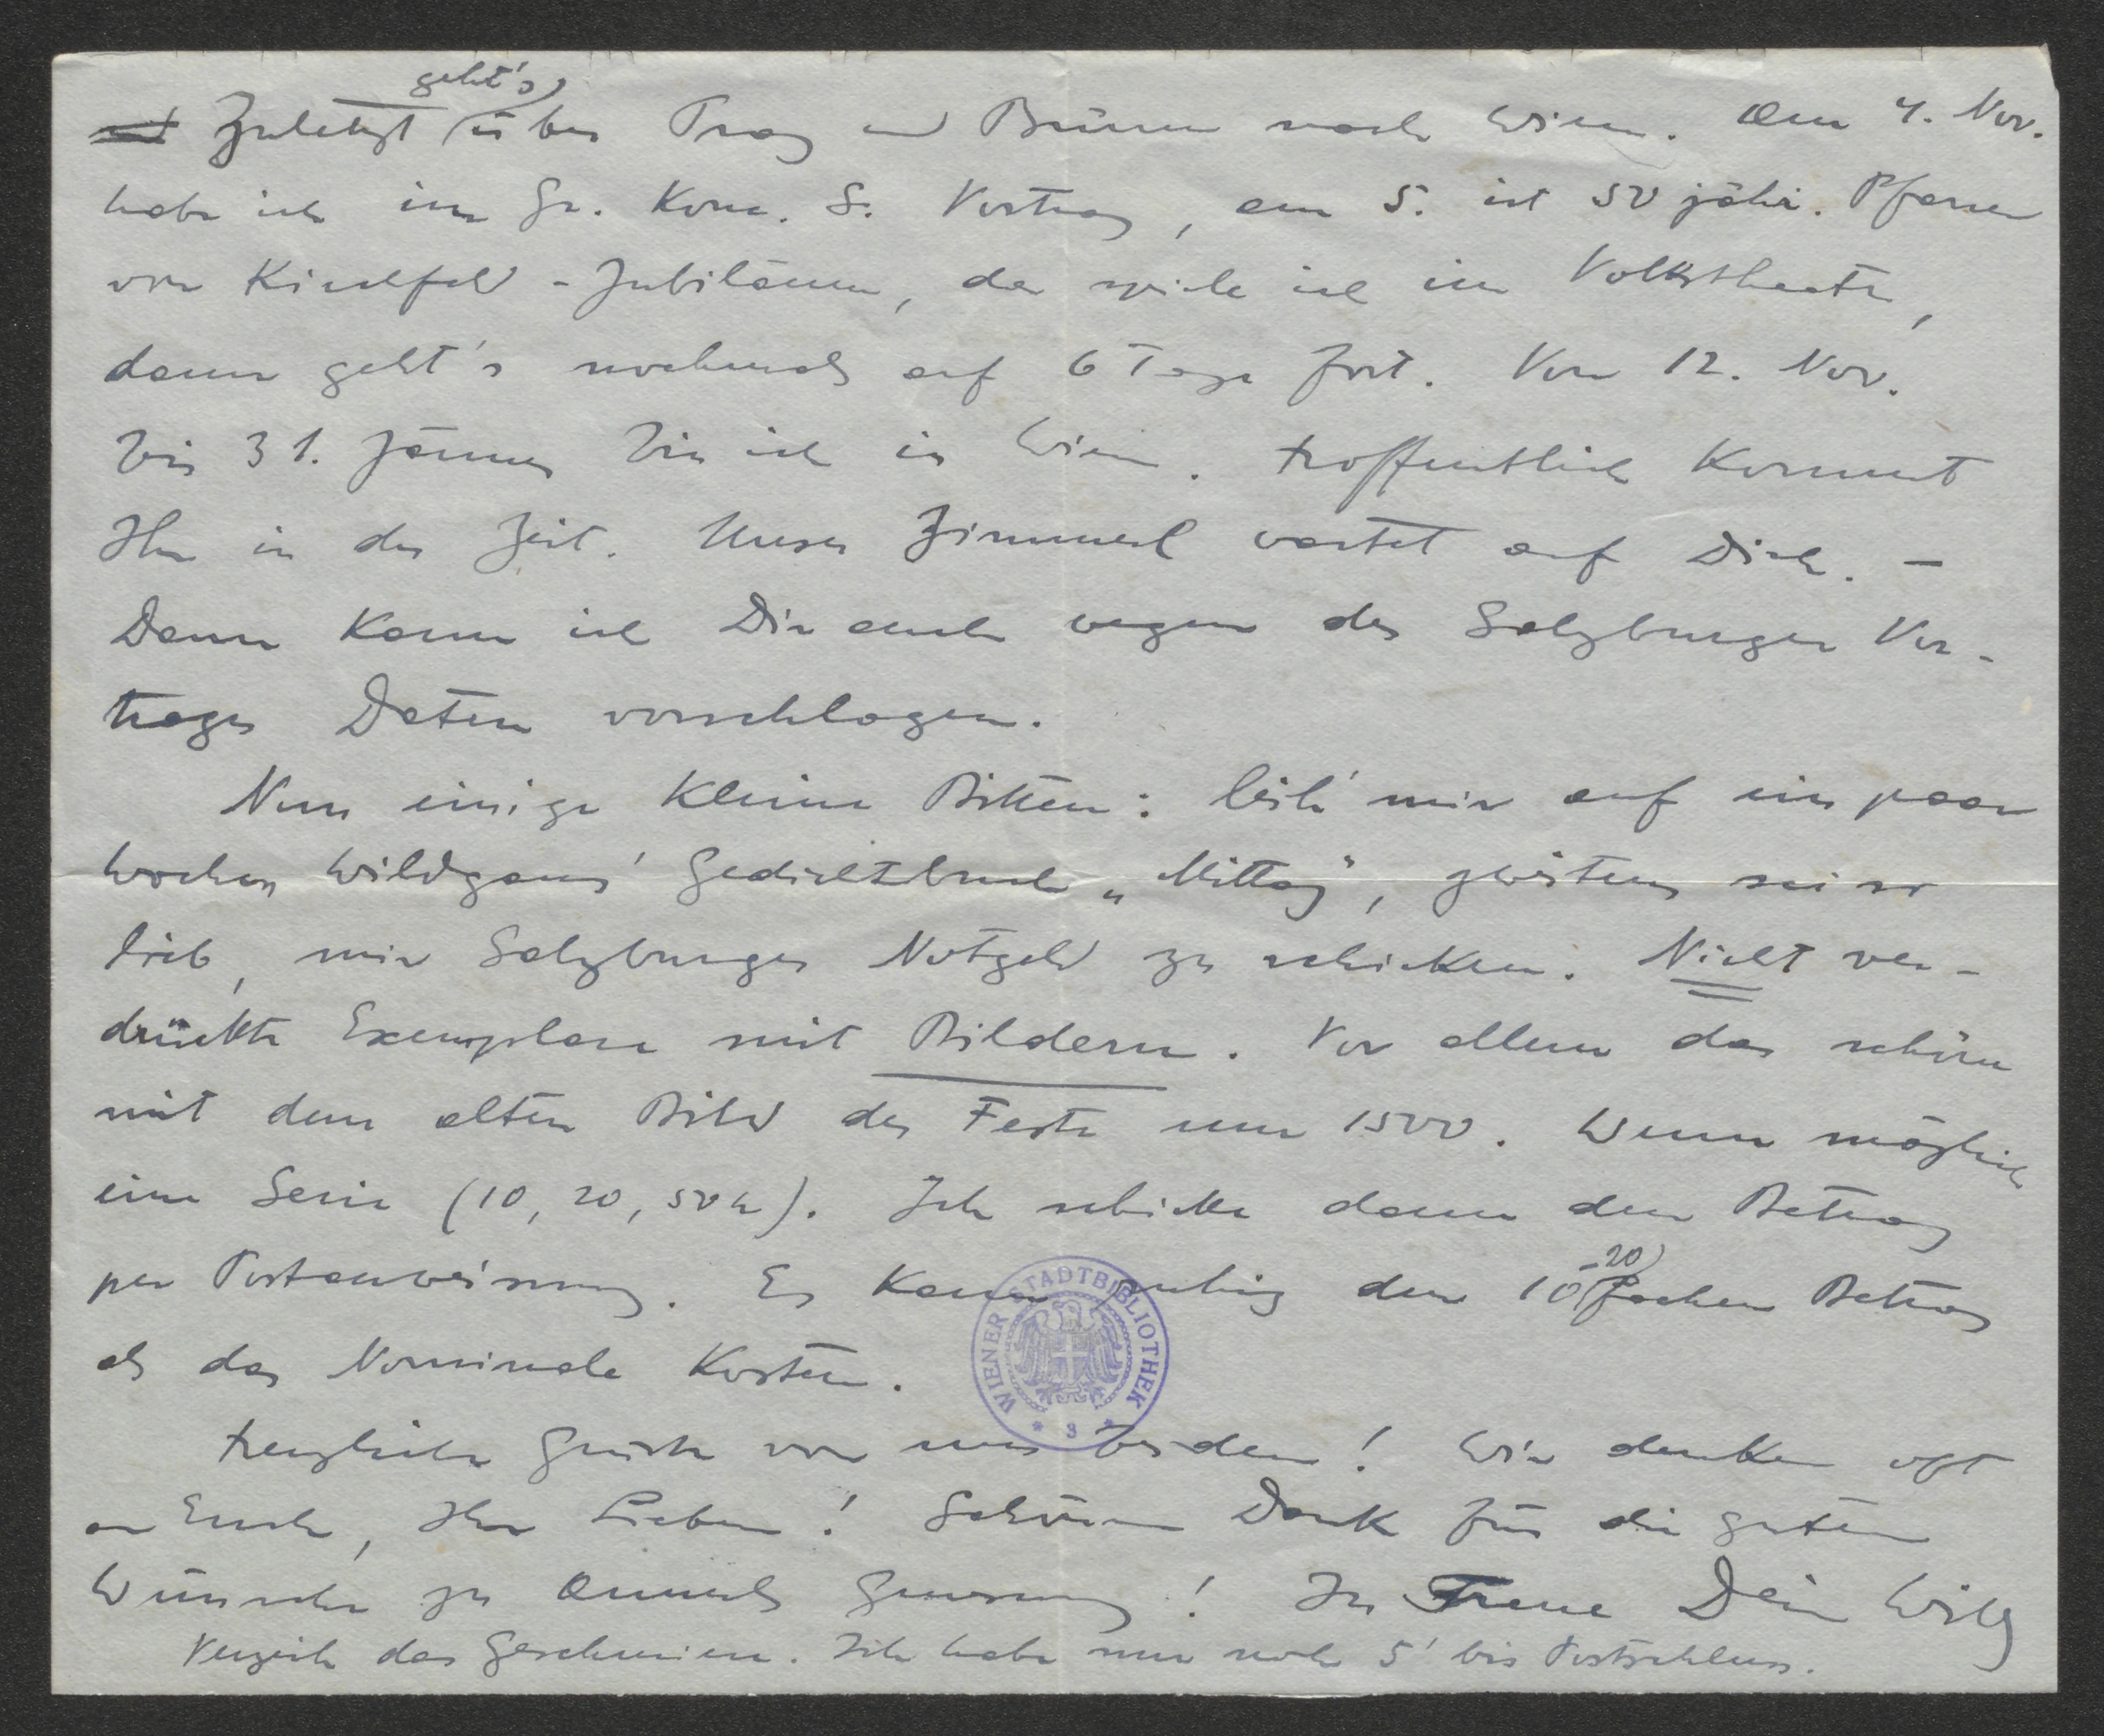 geht's
Zuletzt über Prag und Brünn nach Wien. Am 4. Nov.
habe ich im Gr. Konz. S. Vortrag, am 5. ist 50 jähr. Pfarrer
von Kirchfeld-Jubiläum, da spiele ich im Volkstheater,
dann geht's nochmals auf 6 Tage fort. Von 12. Nov.
bis 31. Jänner bin ich in Wien. Hoffentlich kommt
Ihr in der Zeit. Unser Zimmerl wartet auf Dich. –
Dann kann ich Dir auch wegen des Salzburger Vor-
trages Daten vorschlagen.
Nun einige kleine Bitten: leih' mir auf ein paar
Wochen Wildgans' Gedichtbuch „Mittag", zweitens sei so
lieb, mir Salzburger Notgeld zu schicken. Nicht ver-
drückte Exemplare mit Bildern. Vor allem das schöne
mit dem alten Bild der Feste um 1500. Wenn möglich
eine Serie (10, 20, 50 h). Ich schicke dann den Betrag
per Postanweisung. Es kann ruhig den 10-20fachen Betrag
als das Nominale kosten.
Herzliche Grüße von uns beiden! Wir denken oft
an Euch, Ihr Lieben! Schönen Dank für die guten
Wünsche zu Annerls Genesung! In Treue Dein Willy
Verzeih das Geschmiere. Ich habe nur noch 5' bis Postschluss.
WIENER STADTBIBLIOTHEK